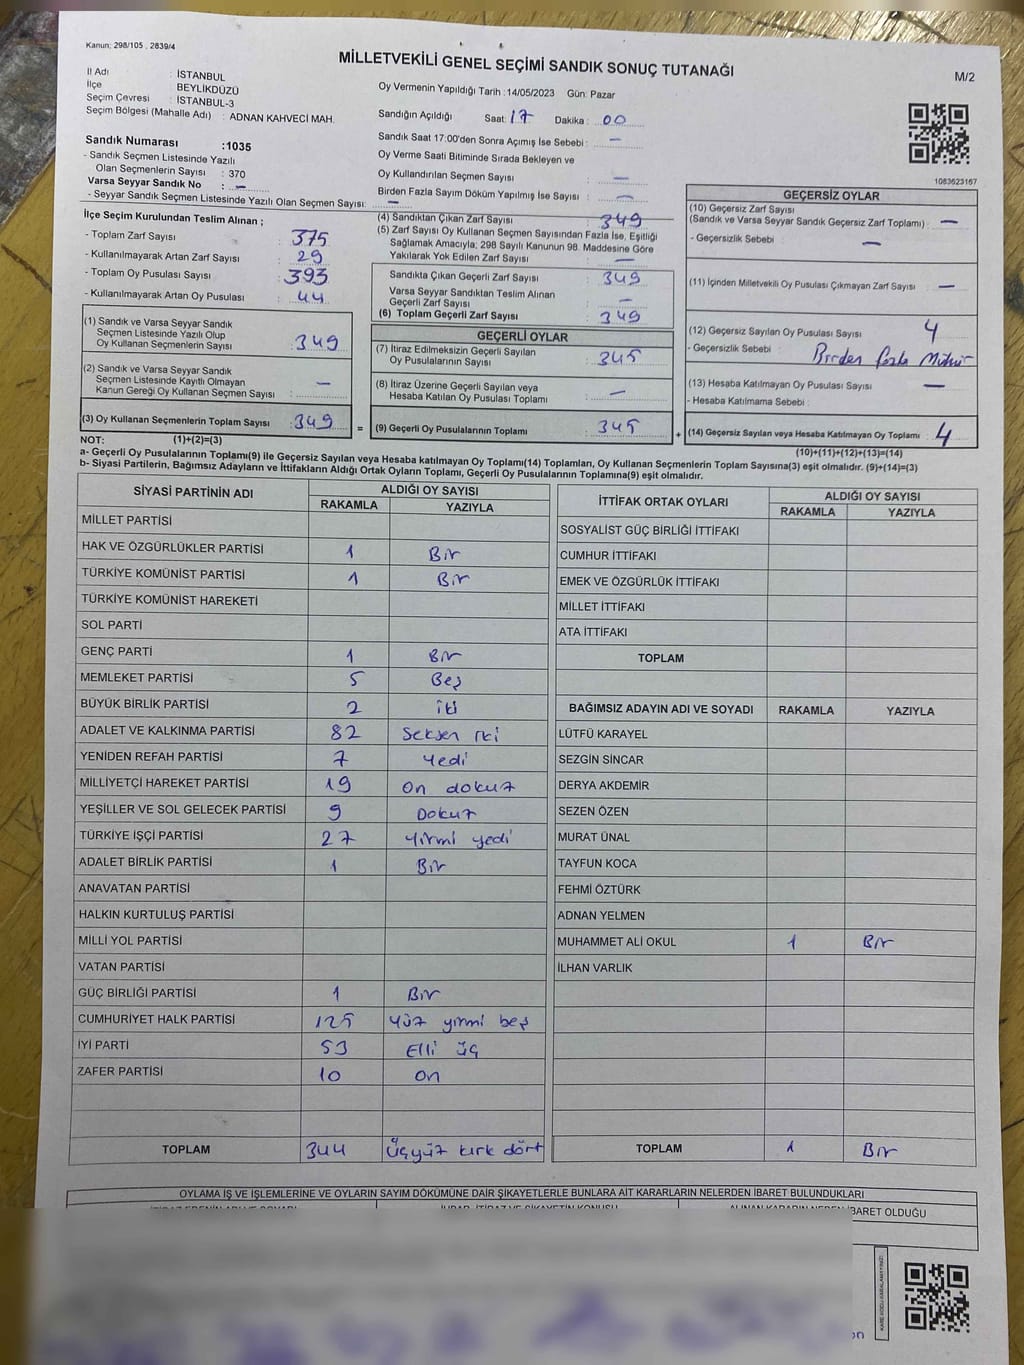 Kanun: 298/105 , 2839/4
MİLLETVEKİLİ GENEL SEÇİMİ SANDIK SONUÇ TUTANAĞI
M/2
İl Adı : İSTANBUL
İlçe BEYLİKDÜZÜ
Seçim Çevresi : İSTANBUL-3
Seçim Bölgesi (Mahalle Adı) : ADNAN KAHVECİ MAH.
Sandık Numarası :1035
- Sandık Seçmen Listesinde Yazılı
Olan Seçmenlerin Sayısı : 370
Varsa Seyyar Sandık No : —
- Seyyar Sandık Seçmen Listesinde Yazılı Olan Seçmen Sayısı: —
Oy Vermenin Yapıldığı Tarih :14/05/2023 Gün: Pazar
Sandığın Açıldığı Saat: 17 Dakika : 00
Sandık Saat 17:00'den Sonra Açılmış İse Sebebi : —
Oy Verme Saati Bitiminde Sırada Bekleyen ve
Oy Kullandırılan Seçmen Sayısı : —
Birden Fazla Sayım Döküm Yapılmış İse Sayısı : —
1083623167
İlçe Seçim Kurulundan Teslim Alınan ;
- Toplam Zarf Sayısı : 375
- Kullanılmayarak Artan Zarf Sayısı : 29
- Toplam Oy Pusulası Sayısı : 393
- Kullanılmayarak Artan Oy Pusulası : 44
(1) Sandık ve Varsa Seyyar Sandık
Seçmen Listesinde Yazılı Olup
Oy Kullanan Seçmenlerin Sayısı : 349
(2) Sandık ve Varsa Seyyar Sandık
Seçmen Listesinde Kayıtlı Olmayan
Kanun Gereği Oy Kullanan Seçmen Sayısı : —
(3) Oy Kullanan Seçmenlerin Toplam Sayısı : 349
(4) Sandıktan Çıkan Zarf Sayısı : 349
(5) Zarf Sayısı Oy Kullanan Seçmen Sayısından Fazla İse, Eşitliği
Sağlamak Amacıyla; 298 Sayılı Kanunun 98. Maddesine Göre
Yakılarak Yok Edilen Zarf Sayısı : —
Sandıkta Çıkan Geçerli Zarf Sayısı : 349
Varsa Seyyar Sandıktan Teslim Alınan
Geçerli Zarf Sayısı : —
(6) Toplam Geçerli Zarf Sayısı : 349
GEÇERLİ OYLAR
(7) İtiraz Edilmeksizin Geçerli Sayılan
Oy Pusulalarının Sayısı : 345
(8) İtiraz Üzerine Geçerli Sayılan veya
Hesaba Katılan Oy Pusulası Toplamı : —
= (9) Geçerli Oy Pusulalarının Toplamı : 345
GEÇERSİZ OYLAR
(10) Geçersiz Zarf Sayısı
(Sandık ve Varsa Seyyar Sandık Geçersiz Zarf Toplamı) : —
- Geçersizlik Sebebi : —
(11) İçinden Milletvekili Oy Pusulası Çıkmayan Zarf Sayısı : —
(12) Geçersiz Sayılan Oy Pusulası Sayısı : 4
- Geçersizlik Sebebi : Birden fazla Mühür
(13) Hesaba Katılmayan Oy Pusulası Sayısı : —
- Hesaba Katılmama Sebebi :
+ (14) Geçersiz Sayılan veya Hesaba Katılmayan Oy Toplamı : 4
NOT: (1)+(2)=(3) (10)+(11)+(12)+(13)=(14)
a- Geçerli Oy Pusulalarının Toplamı(9) ile Geçersiz Sayılan veya Hesaba katılmayan Oy Toplamı(14) Toplamları, Oy Kullanan Seçmenlerin Toplam Sayısına(3) eşit olmalıdır. (9)+(14)=(3)
b- Siyasi Partilerin, Bağımsız Adayların ve İttifakların Aldığı Ortak Oyların Toplamı, Geçerli Oy Pusulalarının Toplamına(9) eşit olmalıdır.
SİYASİ PARTİNİN ADI ALDIĞI OY SAYISI
RAKAMLA YAZIYLA
MİLLET PARTİSİ
HAK VE ÖZGÜRLÜKLER PARTİSİ 1 Bir
TÜRKİYE KOMÜNİST PARTİSİ 1 Bir
TÜRKİYE KOMÜNİST HAREKETİ
SOL PARTİ
GENÇ PARTİ 1 Bir
MEMLEKET PARTİSİ 5 Beş
BÜYÜK BİRLİK PARTİSİ 2 iki
ADALET VE KALKINMA PARTİSİ 82 Seksen iki
YENİDEN REFAH PARTİSİ 7 Yedi
MİLLİYETÇİ HAREKET PARTİSİ 19 On dokuz
YEŞİLLER VE SOL GELECEK PARTİSİ 9 Dokuz
TÜRKİYE İŞÇİ PARTİSİ 27 Yirmi yedi
ADALET BİRLİK PARTİSİ 1 Bir
ANAVATAN PARTİSİ
HALKIN KURTULUŞ PARTİSİ
MİLLİ YOL PARTİSİ
VATAN PARTİSİ
GÜÇ BİRLİĞİ PARTİSİ 1 Bir
CUMHURİYET HALK PARTİSİ 125 Yüz yirmi beş
İYİ PARTİ 53 Elli üç
ZAFER PARTİSİ 10 On
TOPLAM 344 Üçyüz kırk dört
İTTİFAK ORTAK OYLARI ALDIĞI OY SAYISI
RAKAMLA YAZIYLA
SOSYALİST GÜÇ BİRLİĞİ İTTİFAKI
CUMHUR İTTİFAKI
EMEK VE ÖZGÜRLÜK İTTİFAKI
MİLLET İTTİFAKI
ATA İTTİFAKI
TOPLAM
BAĞIMSIZ ADAYIN ADI VE SOYADI RAKAMLA YAZIYLA
LÜTFÜ KARAYEL
SEZGİN SİNCAR
DERYA AKDEMİR
SEZEN ÖZEN
MURAT ÜNAL
TAYFUN KOCA
FEHMİ ÖZTÜRK
ADNAN YELMEN
MUHAMMET ALİ OKUL 1 Bir
İLHAN VARLIK
TOPLAM 1 Bir
OYLAMA İŞ VE İŞLEMLERİNE VE OYLARIN SAYIM DÖKÜMÜNE DAİR ŞİKAYETLERLE BUNLARA AİT KARARLARIN NELERDEN İBARET BULUNDUKLARI
İBARET OLDUĞU